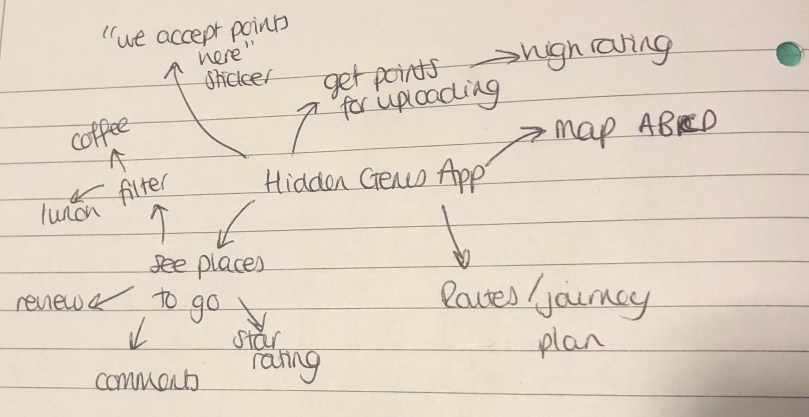 "we accept points
here"
sticker
get points
for uploading
high rating
map ABCD
coffee
filter
lunch
Hidden Gems App
see places
to go
review
comments
star
rating
Routes/journey
plan